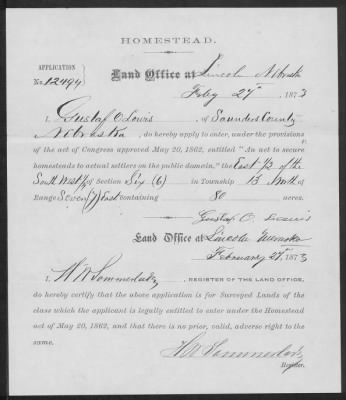 HOMESTEAD.
APPLICATION
No. 12494
Land Office at Lincoln Nebraska
Feby 27th 1873
I, Gustaf O Lewis, of Saunders County
Nebraska, do hereby apply to enter, under the provisions
of the act of Congress approved May 20, 1862, entitled "An act to secure
homesteads to actual settlers on the public domain," the East 1/2 of the
South West 1/4 of Section Six (6) in Township 13 North of
Range Seven (7) East containing 80 acres.
Gustaf O. Lewis
Land Office at Lincoln Nebraska
February 27th 1873
I, , REGISTER OF THE LAND OFFICE,
do hereby certify that the above application is for Surveyed Lands of the
class which the applicant is legally entitled to enter under the Homestead
act of May 20, 1862, and that there is no prior, valid, adverse right to the
same.
Register.